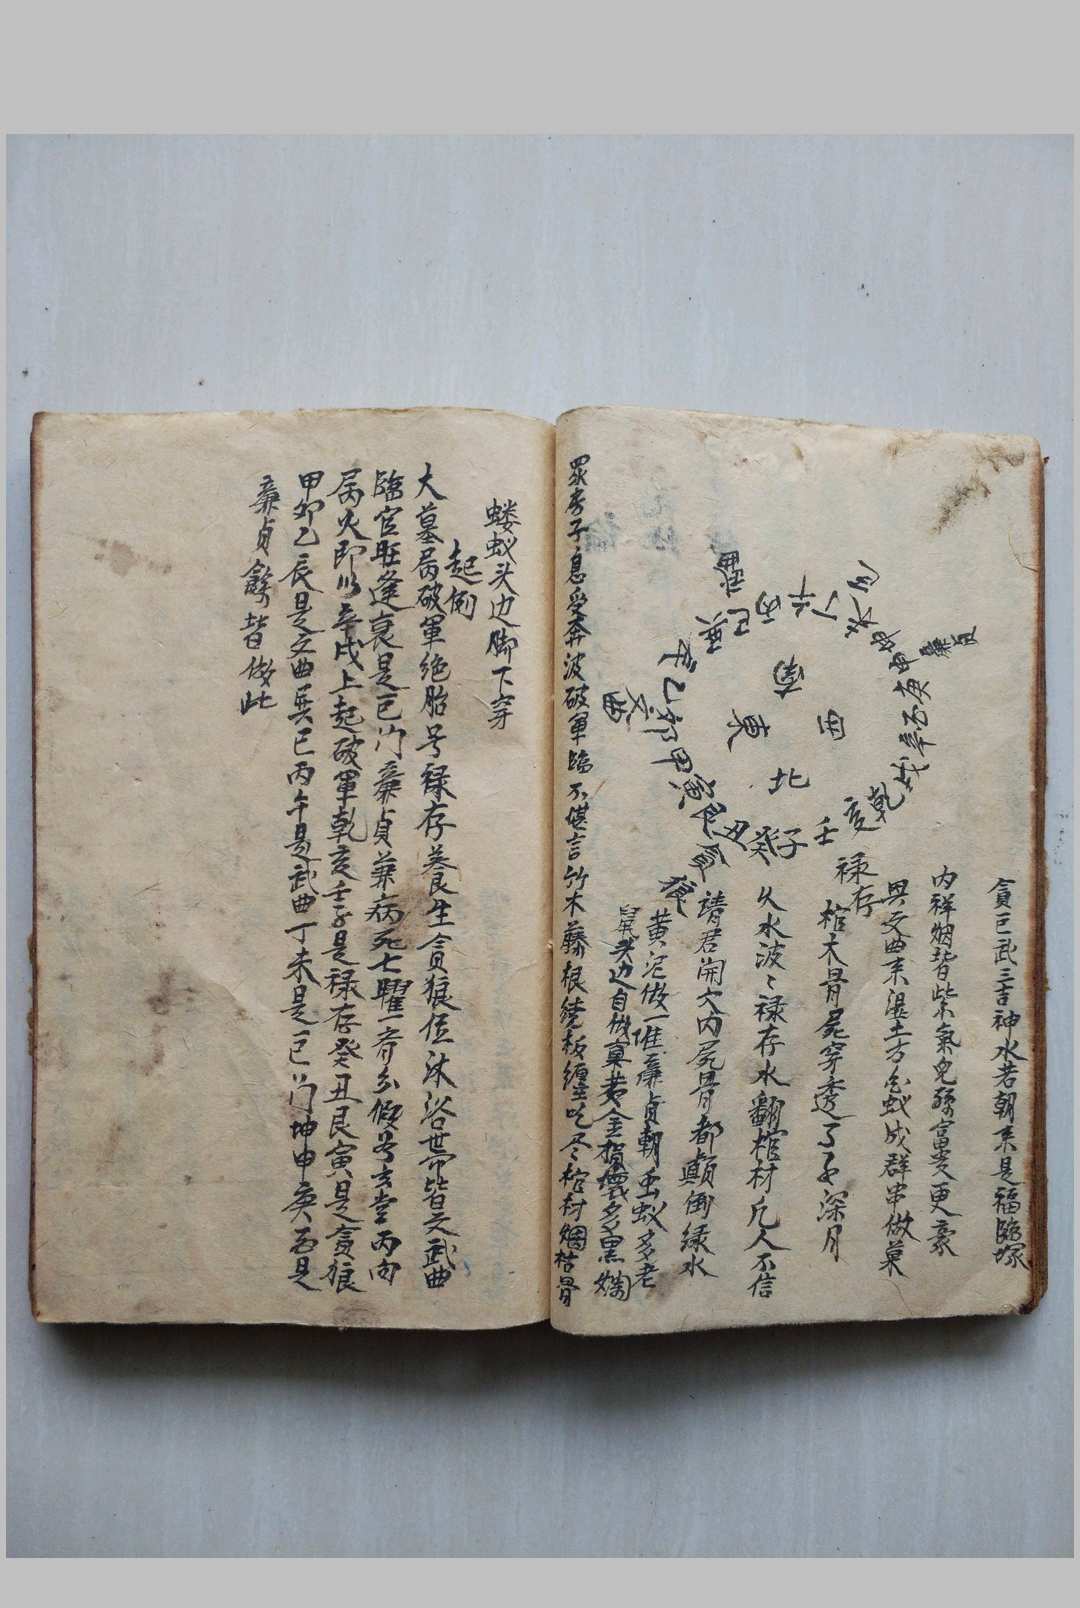 貪巨武三吉神水若朝来是福臨塚
内祥烟皆紫氣兒孫富更豪
巽文曲来湿土方白蚁成群串做菓
禄存
棺木骨屍穿透了子深月
久水波〻禄存水翻棺材凡人不信
請君開穴内屍骨都顛倒绿水
黄泥做一堆廉貞朝虫蚁多老
鼠头边自做窠黄金損壞多黑烟
眾房子息受奔波破軍臨不堪言竹木藤根繞板纏吃尽棺材烟枯骨
南
東
西
北
武曲
巽巳丙午丁未坤申庚酉辛戌乾亥壬子癸丑艮寅甲卯乙辰
廉貞
文曲
貪狼
蝼蚁头边脚下穿
起例
大墓局破軍绝胎号禄存養生貪狼位沐浴带皆文武曲
臨官旺逢衰是巨门廉貞兼病死七曜一斉分假如玄堂丙向
属火即以辛戌上起破軍乾亥壬子是禄存癸丑艮寅是貪狼
甲卯乙辰是文曲巽巳丙午是武曲丁未是巨门坤申庚酉是
廉貞餘皆倣此